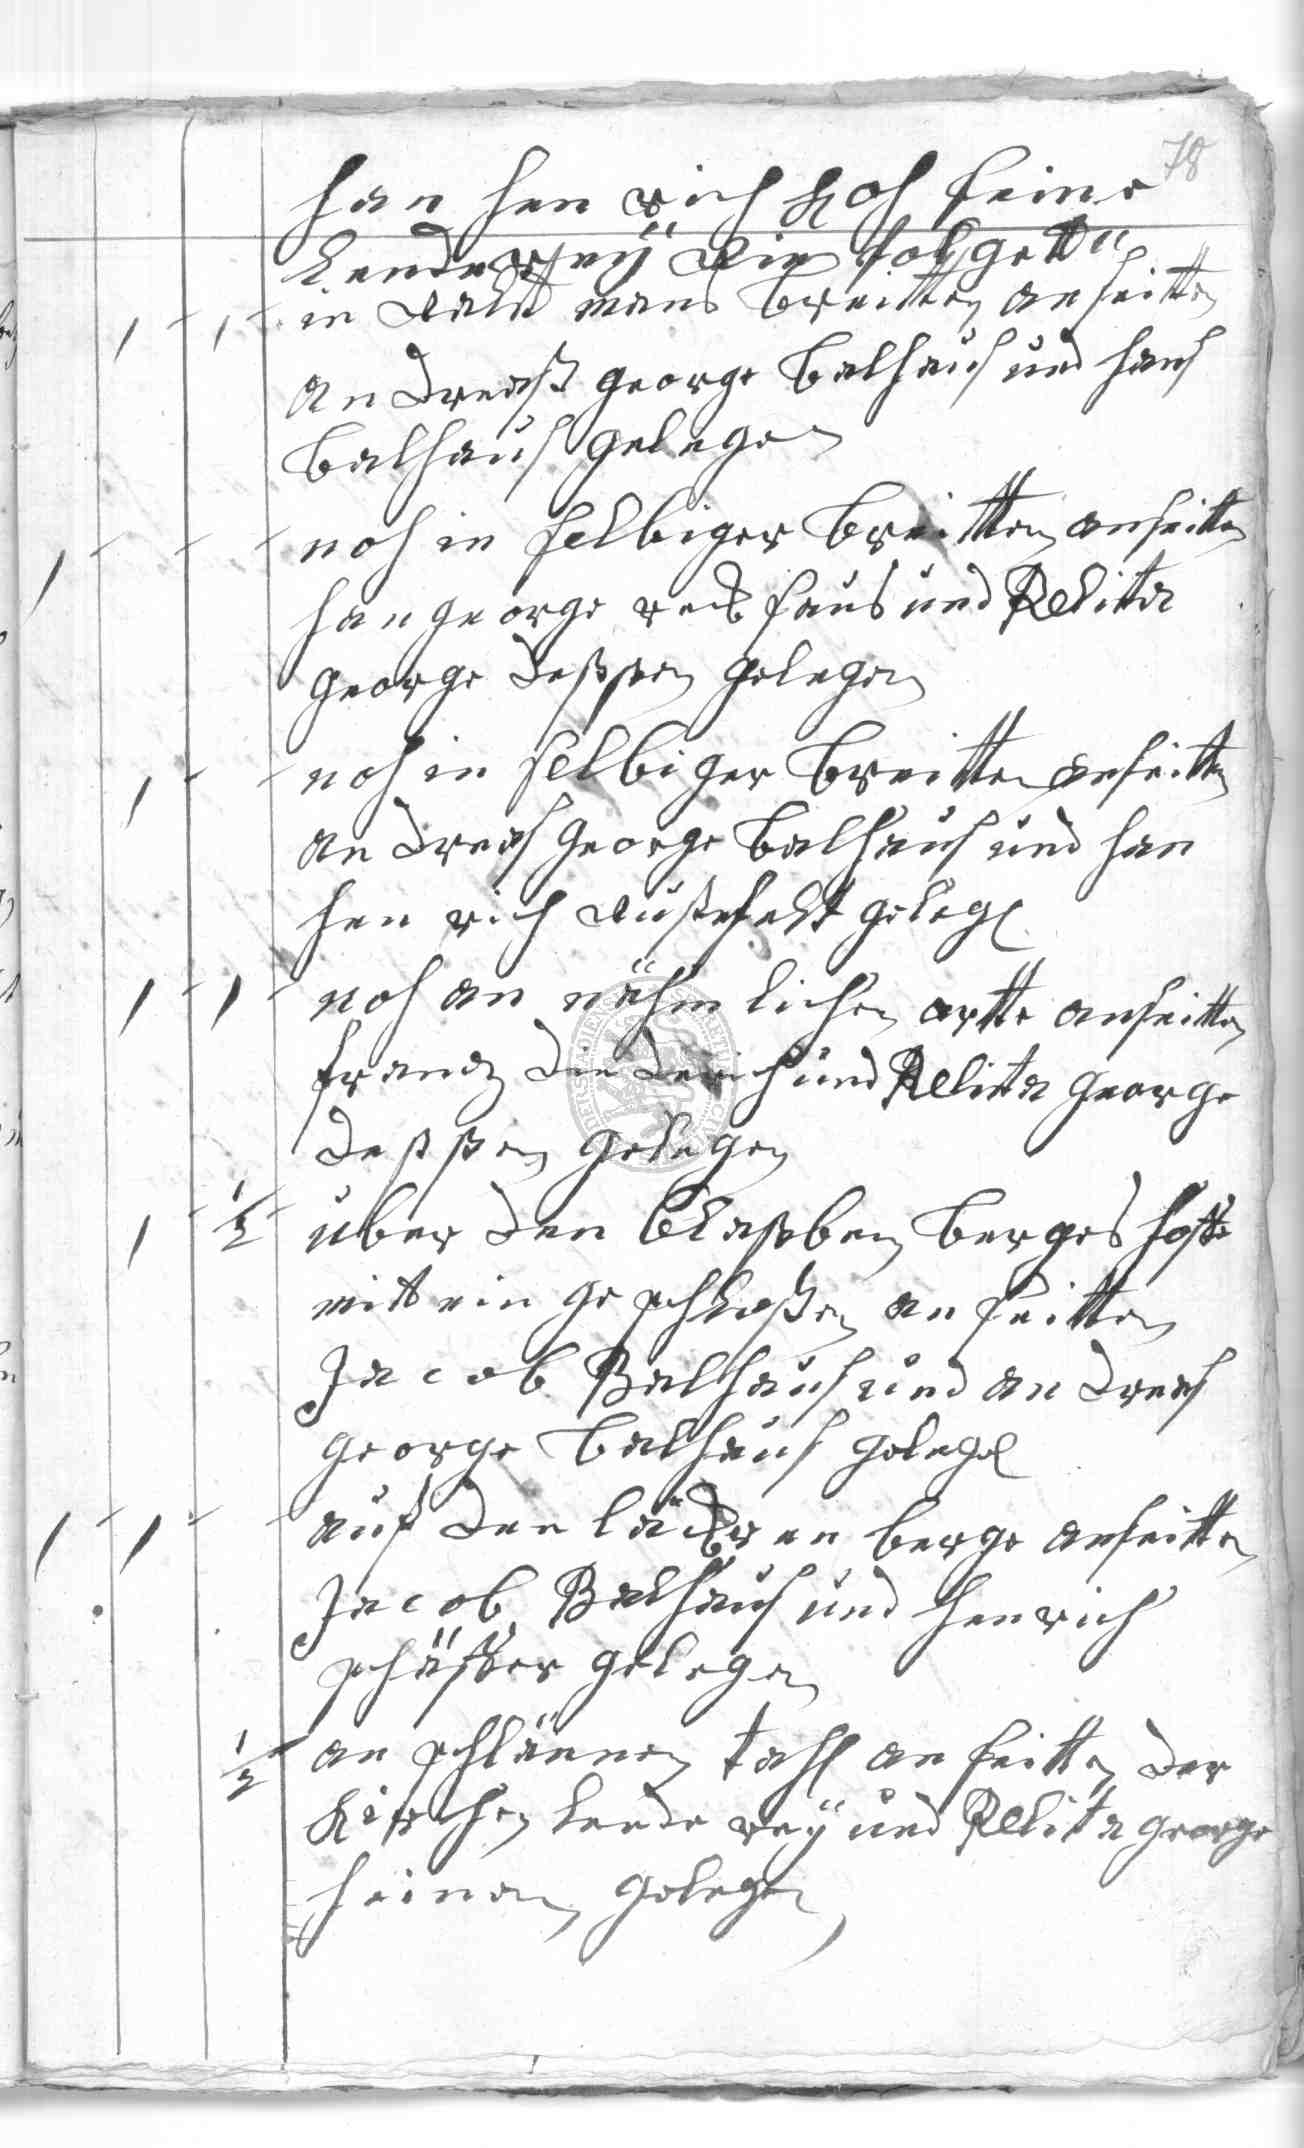 78
han hen rich Koh seine
Lenderey wie folgett
1 - 1 - in Waldt mans breitten anseitten
an dreaß george balhaus und hans
balhaus gelegen
1 - - - noh in selbiger breitten anseitten
han george reb haus und Relita
george deßßen gelegen
1 - - noh in selbiger breitten anseitten
an dreas george balhaus und han
hen rich gelegen
1 - 1 - noh an nähm lichen ortte anseitten
frantz die derich und Relita george
deßßen gelegen
1 - ½ - über den berges
mit ein ge schloßen an seitten
Jacob Balhaus und an dreas
george balhaus gelegen
1 - 1 - - auf den berge anseitten
Jacob Balhaus und Henrich
schäffer gelegen
½ an tahl an seitten der
Kirchen lende rey und Relita george
heinen gelegen